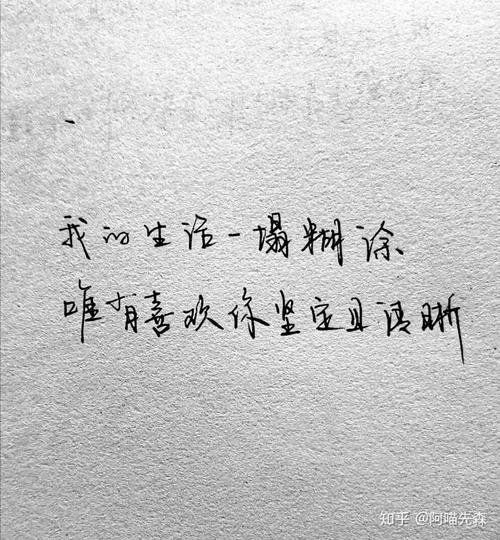 我的生活一塌糊涂
唯有喜欢你坚定且清晰
知乎 @阿喵先森